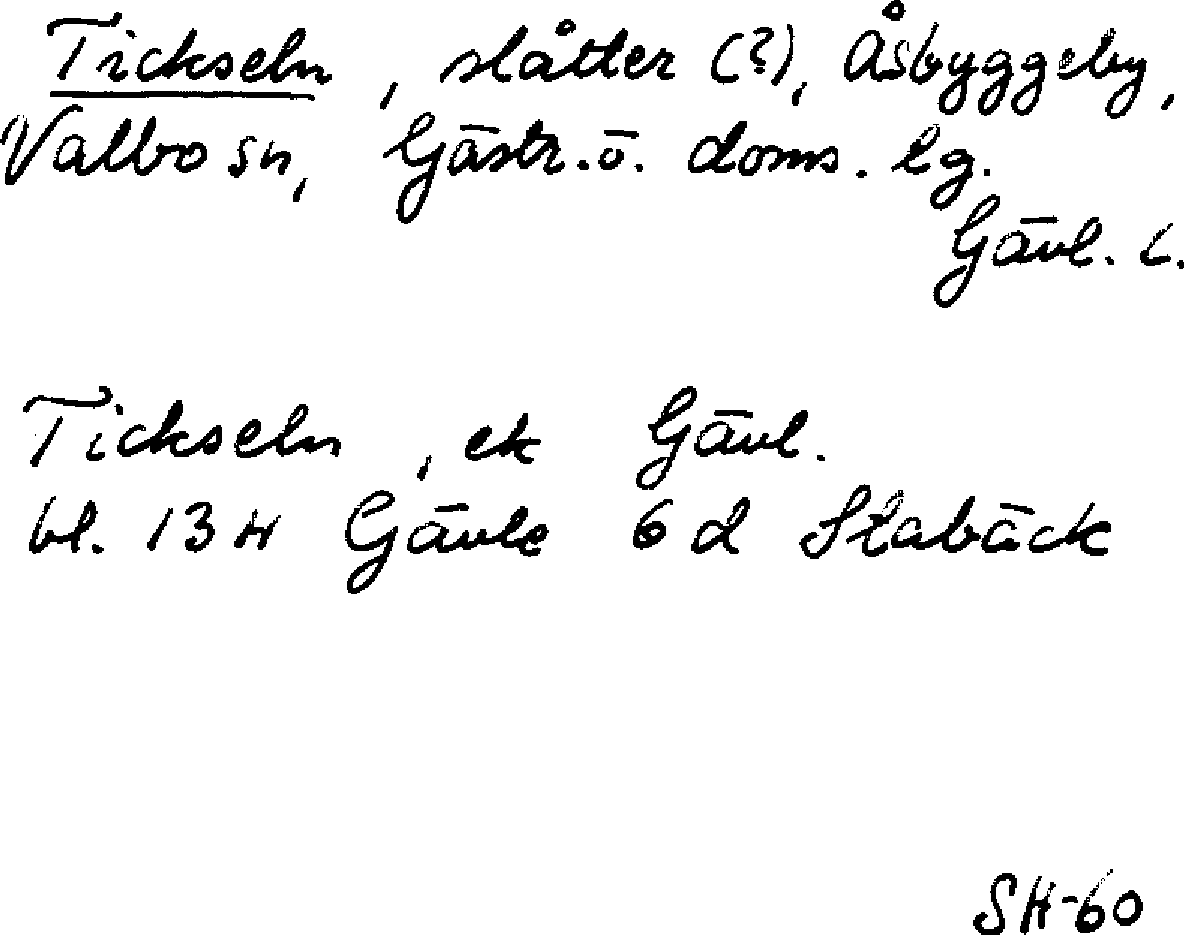 Tickseln, slåtter (?), Åsbyggeby,
Valbo sn, Gästr. ö. doms. lg.
Gävl. l.
Tickseln, ek Gävl.
bl. 13 H Gävle 6 d Stabäck
SH-60